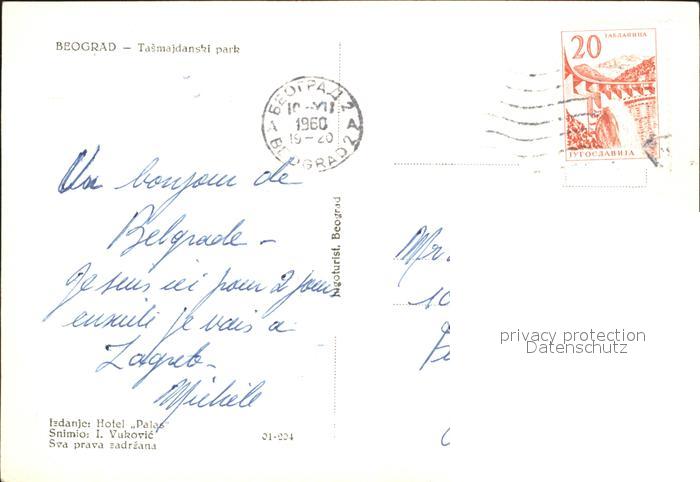 BEOGRAD — Tašmajdanski park
20
ЈАБЛАНИЦА
ЈУГОСЛАВИЈА
БЕОГРАД 2
1960
19-20
BEOGRAD 2
Un bonjour de
Belgrade -
Je suis ici pour 2 jours
ensuite je vais a
Zagreb -
Michèle
Jugoturist, Beograd
Mr.
10
privacy protection
Datenschutz
Izdanje: Hotel „Palas"
Snimio: I. Vuković
Sva prava zadržana
01-204